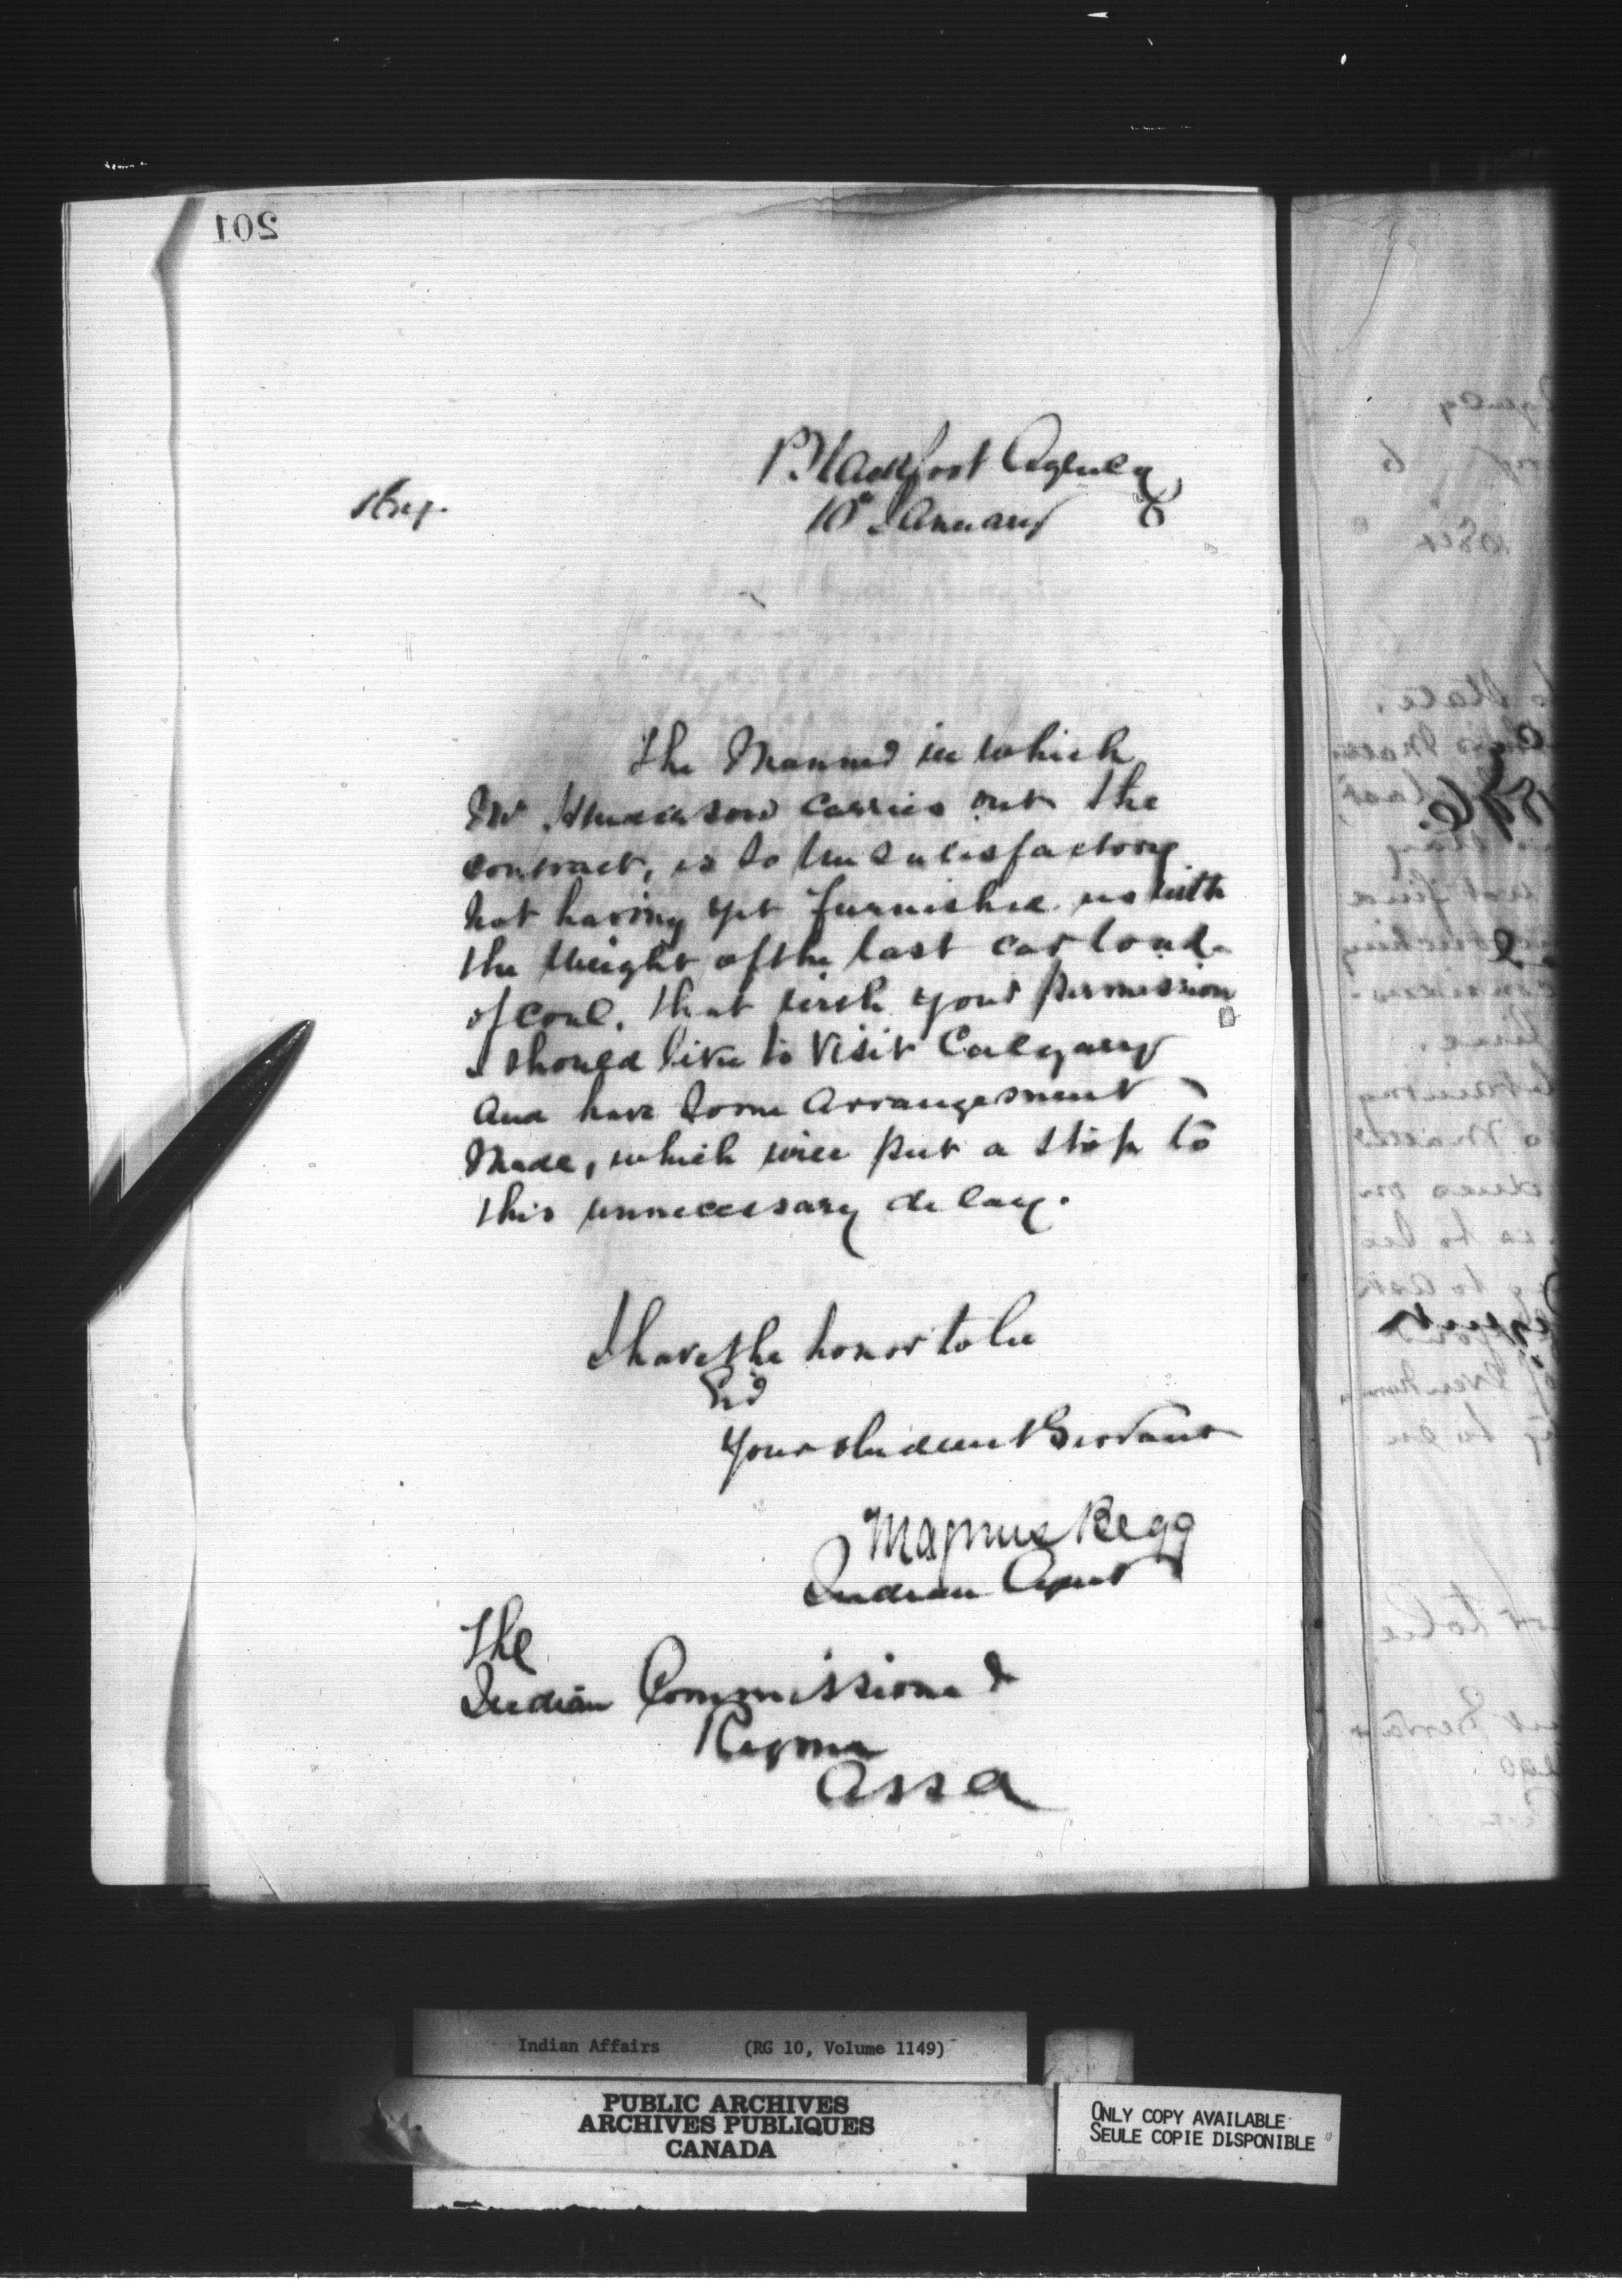 201
Blackfoot Agency
10th January 86
The Manner in which
Mr Henderson carries out the
contract, is so unsatisfactory
not having yet furnished us with
the weight of the last car load
of coal. that with your permission
I should like to visit Calgary
and have some arrangement
made, which will put a stop to
this unnecessary delay.
I have the honor to be
Sir
Your obedient Servant
Magnus Begg
Indian Agent
The
Indian Commissioner
Regina
Assa
Indian Affairs (RG 10, Volume 1149)
PUBLIC ARCHIVES
ARCHIVES PUBLIQUES
CANADA
ONLY COPY AVAILABLE
SEULE COPIE DISPONIBLE